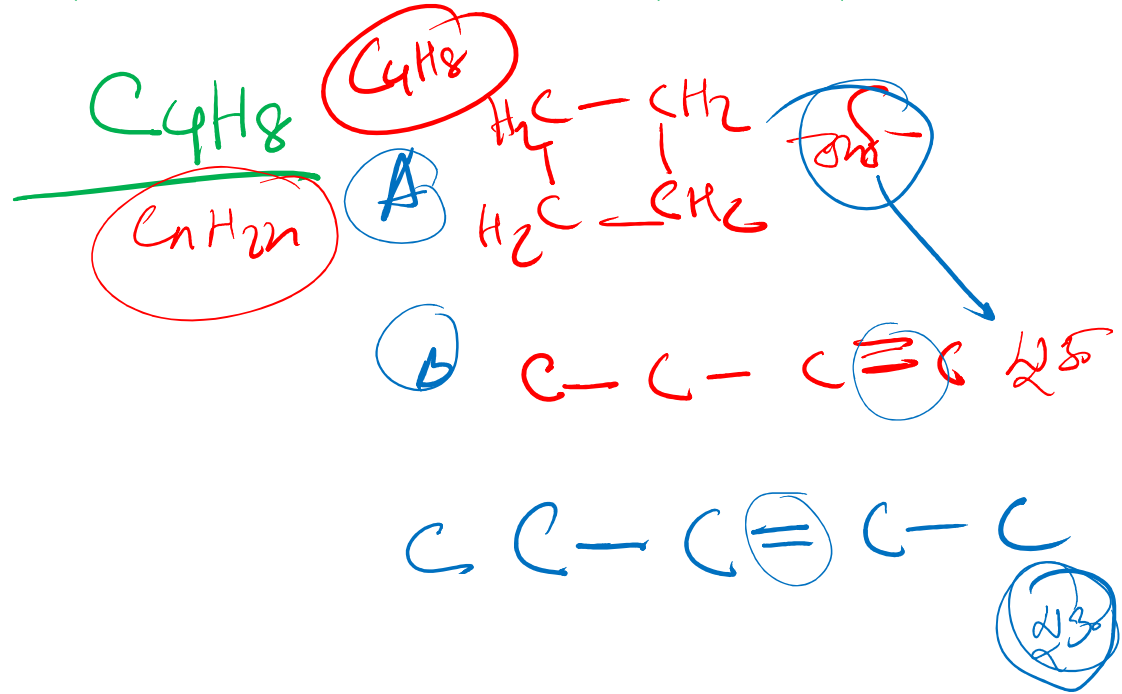 C4H8
C4H8
CnH2n
H2C — CH2
A
H2C — CH2
B
C — C — C = C
C C — C = C — C